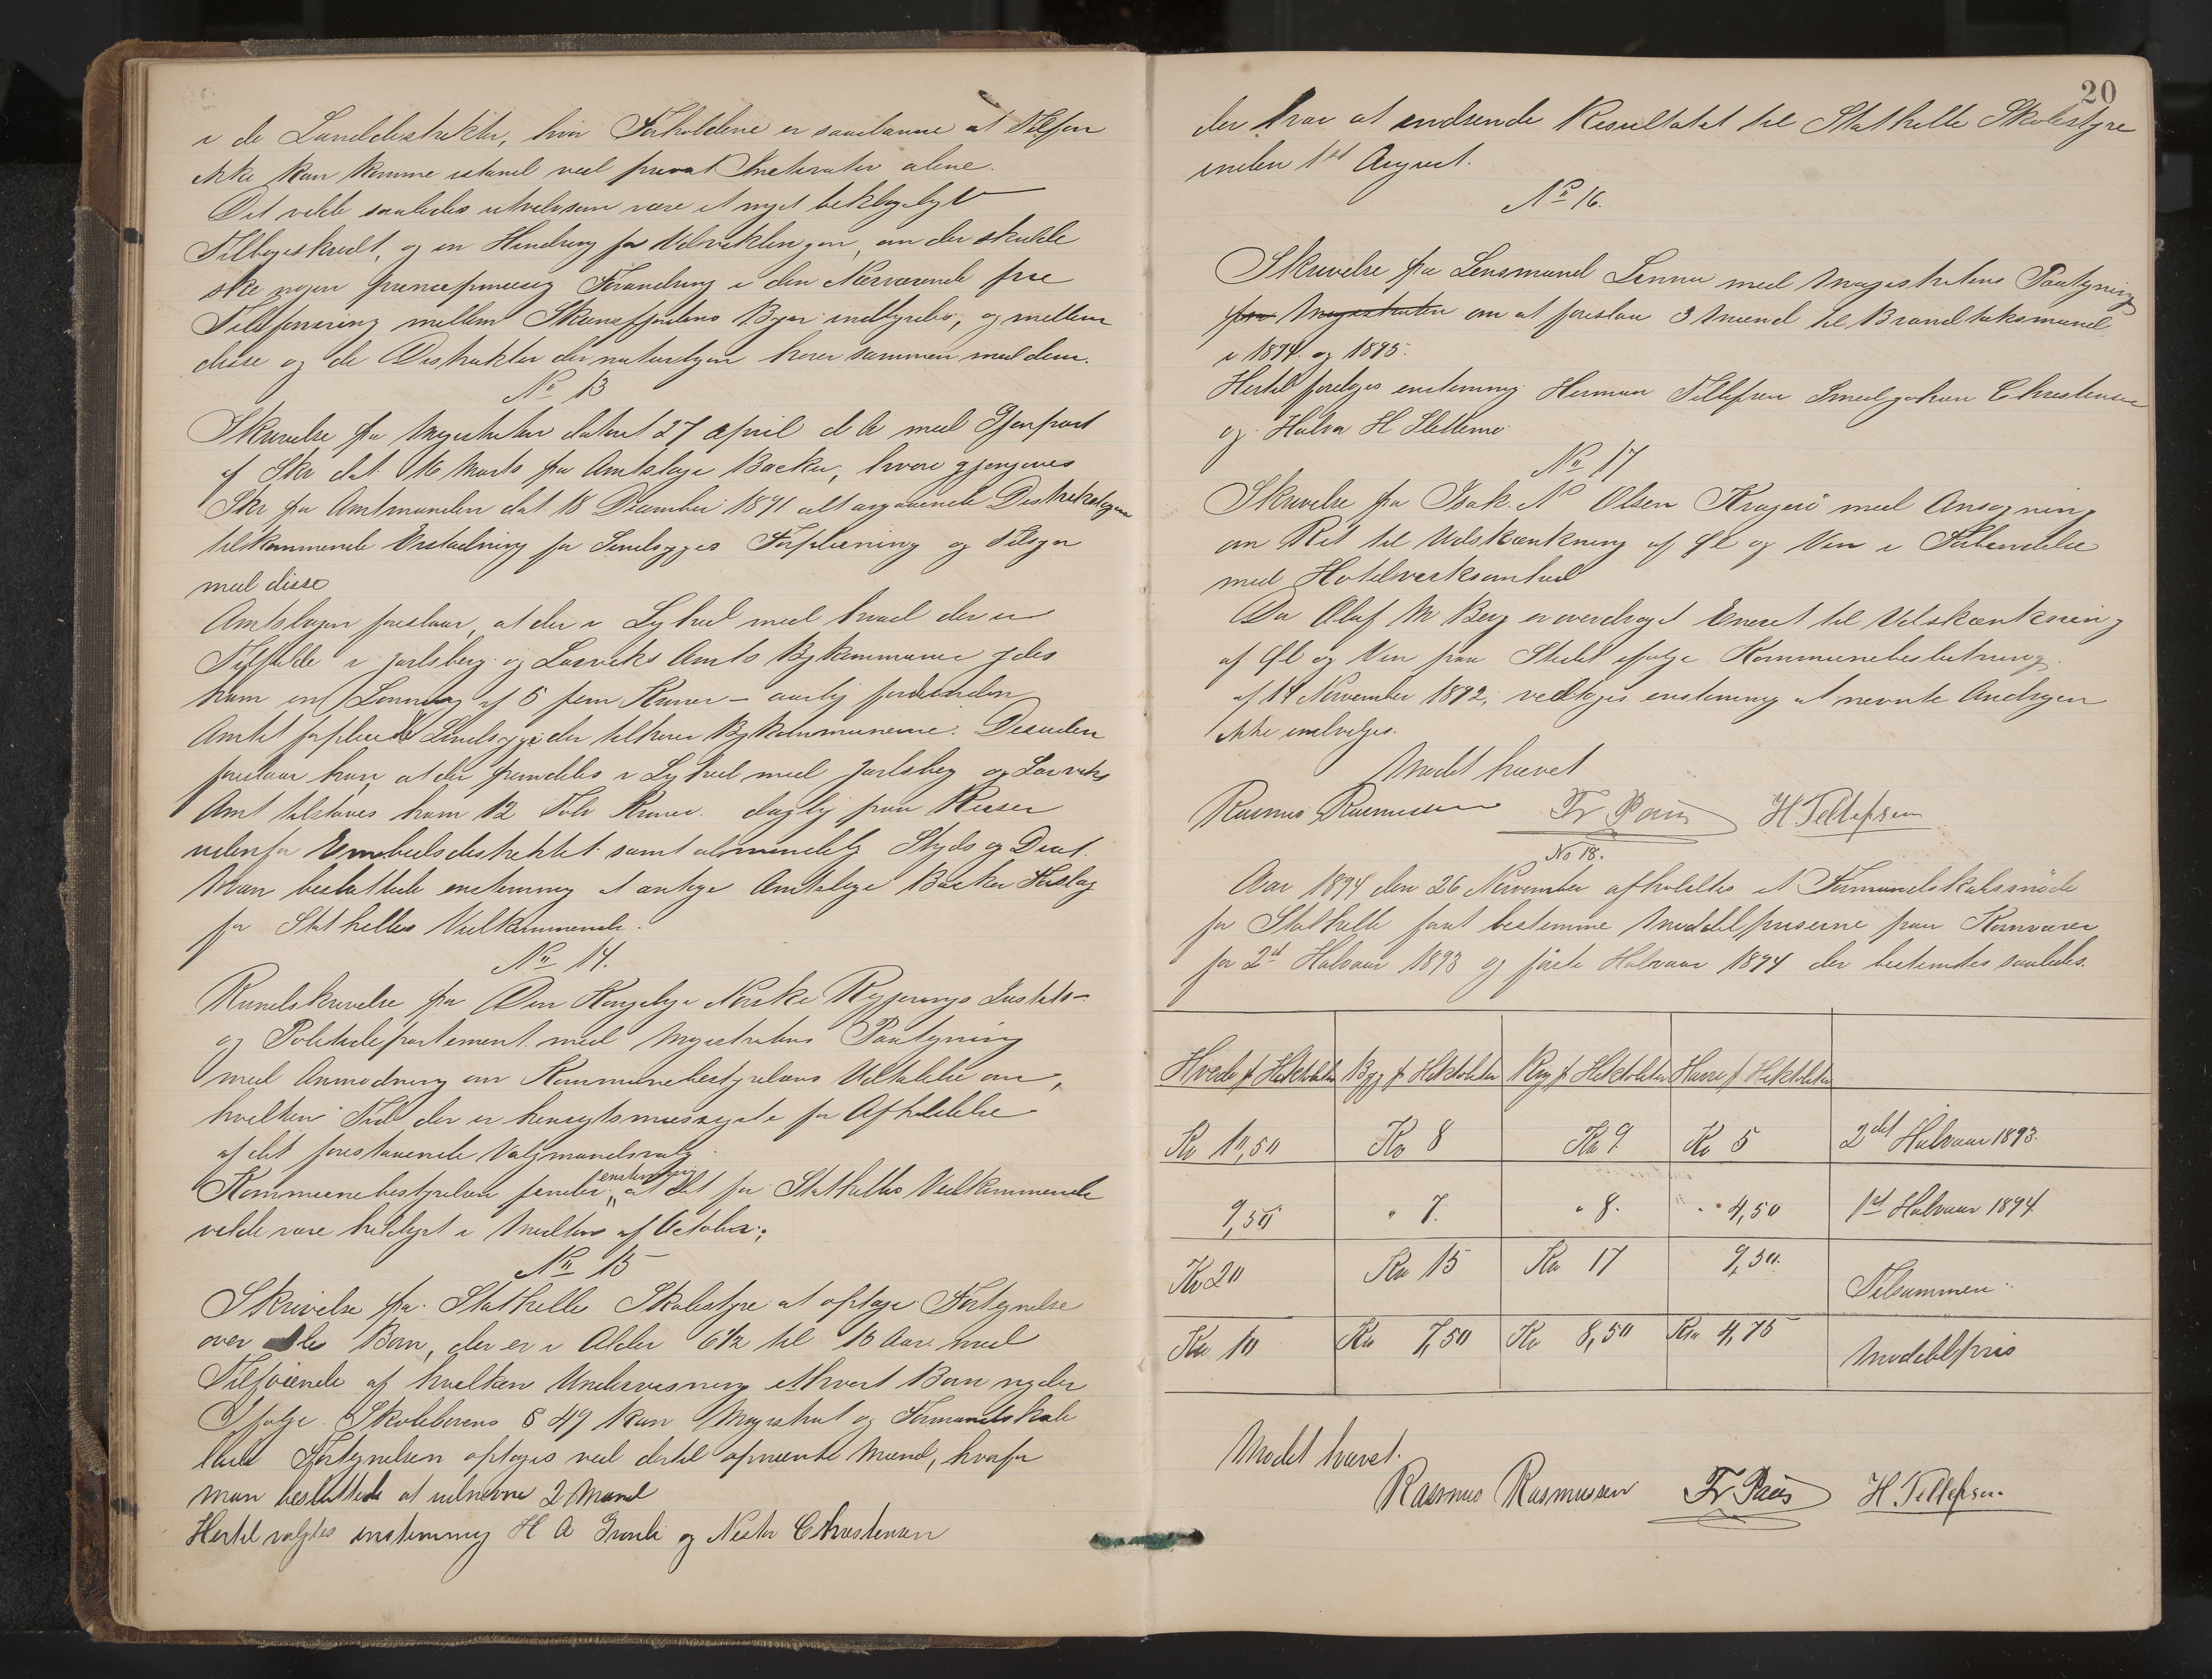 i de Landdistrikter, hvor Forholdene er saadanne at Telefon
ikke kan komme istand ved privat Initiativ alene.
Det vilde saaledes utvilsom være et meget beklageligt
Tilbageskridt, og en Hindring for Udviklingen, om der skulde
ske nogen principmessig Forandring i den Nerværende frie
Telefonering mellem Skiensfjordens Byer indbyrdes, og mellem
disse og de Distrikter der naturligen hører sammen med dem.
No 13
Skrivelse fra Magistraten dateret 27 April d A med Gjenpart
af Skr dat. 16 Marts fra Amtslæge Backer, hvori gjengives
Skr fra Amtmanden dat 18 December 1891 alt angaaende Distriktslægen
tilkommende Erstadning for Sindsyges Forpleining og Tilsyn
med disse
Amtslægen foreslaar, at der i Lighed med hvad der er
Tilfælde i Jarlsberg og Laurviks Amts Bykommuner ydes
ham en Lønning af 5 fem Kroner – aarlig for hver den
Amtet forpleiede Sindsyge der tilhører Bykommunerne. Desuden
foreslaar han, at der fremdeles i Lighed med Jarlsberg og Laurviks
Amt tilstaaes ham 12 Tolv Kroner daglig paa Reiser
udenfor Embedsdistriktet samt almindelig Skyds og Diæt.
Man besluttede enstemmig at antage Amtslæge Backer Forslag
for Stathelles Vedkommende.
No 14.
Rundskrivelse fra Den Kongelige Norske Regjerings Justits-
og Politidepartement med Magistratens Paategning
med Anmodning om Kommunebestyrelsens Udtalelse om,
hvilken Tid der er hensigtsmessigste for Afholdelse
af det forestaaende Valgmandsvalg.
Kommunebestyrelsen finder enstemmig at det for Stathelles Vedkommende
vilde være heldigst i Midten af October.
No 15
Skrivelse fra Stathelle Skolestyre at optage Fortegnelse
over alle Børn, der er i Alder 6½ til 15 Aar med
Tilføiende af hvilken Undervisning ethvert Barn nyder
Ifølge Skolelovens § 49 kan Magistrat og Formandskab
lade Fortegnelsen optages ved dertil opnævnte Mænd, hvorfor
man besluttede at udnævne 2 Mænd
Hertil valgtes enstemmig H A Grønli og Nestor Christensen
20
der har at indsende Resultatet til Stathelle Skolestyre
inden 1ste August.
No 16.
Skrivelse fra Lensmand Linnu med Magistratens Paategning
fra Magistraten om at foreslaa 3 Mænd til Brandtaksmænd
i 1894 og 1895.
Hertil foreloges enstemmig Herman Tellefsen Smed Johan Christensen
og Halvor H Slettemo
No 17
Skrivelse fra Isak. No Olsen Kragerø med Ansøgning
om Ret til Udskænkning af Øl og Vin i Forbindelse
med Hotelvirksomhed
Da Olaf M Berg er overdraget Eneret til Udskænkning
af Øl og Vin paa Stedet ifølge Kommunebeslutning
af 14 November 1892, vedtoges enstemmig at nevnte Andragen
ikke indvilges.
Mødet hævet
Rasmus Rasmussen Fr Paus H Tellefsen
No 18.
Aar 1894 den 26 November afholdtes et Formandskabsmøde
for Stathelle forat bestemme Middelpriserne paa Kornvarer
for 2det Halvaar 1893 og første Halvaar 1894 der bestemtes saaledes.
Hvede pr Hektoliter Byg pr Hektoliter Rug pr Hektoliter Havre pr Hektoliter
Kr 10,50 Kr 8 Kr 9 Kr 5 2det Halvaar 1893.
9,50 " 7. " 8. " 4,50 1st Halvaar 1894
Kr 20 Kr 15 Kr 17 9,50. Tilsammen
Kr 10 Kr 7,50 Kr 8,50 Kr 4,75 Middelpris
Mødet hævet.
Rasmus Rasmussen Fr Paus H Tellefsen